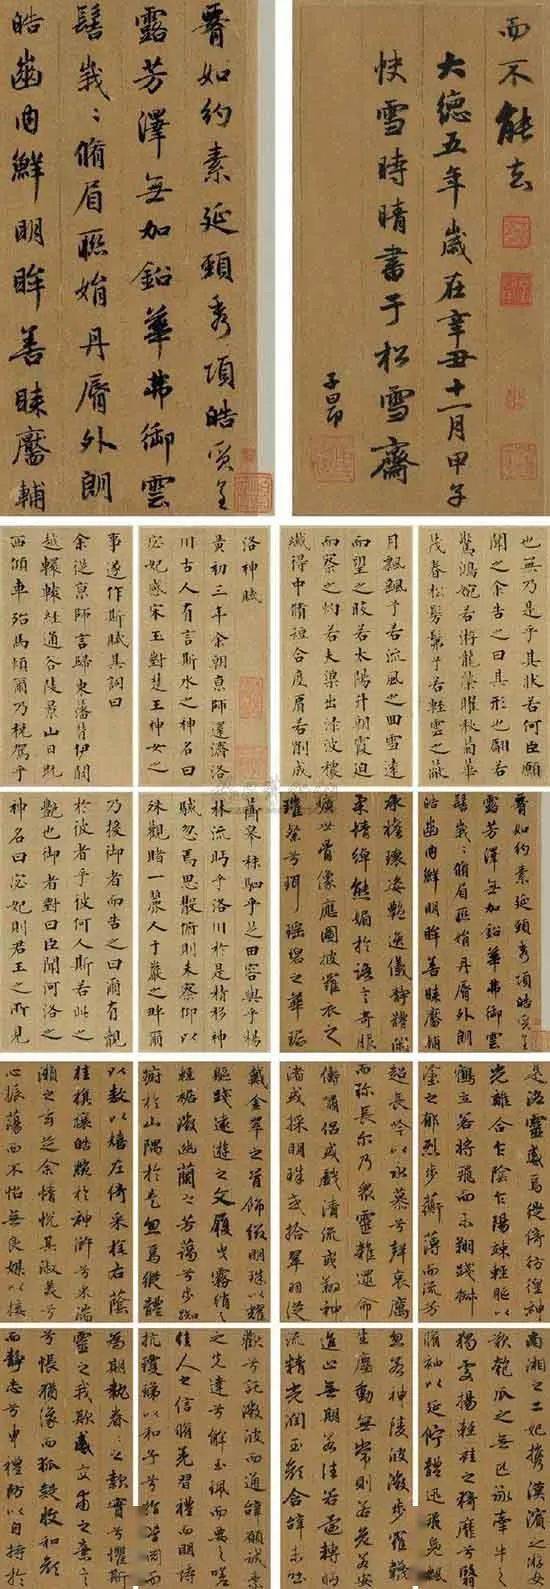 腰如約素延頸秀項皓質呈
露芳澤無加鉛華弗御雲
髻峩〻脩眉聯娟丹脣外朗
皓齒內鮮明眸善睞靨輔
而不能去
大德五年歲在辛丑十一月甲子
快雪時晴書于松雪齋
子昂
洛神賦
黃初三年余朝京師還濟洛
川古人有言斯水之神名曰
宓妃感宋玉對楚王神女之
事遂作斯賦其詞曰
余從京師言歸東藩背伊闕
越轘轅經通谷陵景山日既
西傾車殆馬煩爾乃稅駕乎
蘅皋秣駟乎芝田容與乎楊
林流眄乎洛川於是精移神
駭忽焉思散俯則未察仰以
殊觀睹一麗人于巖之畔爾
乃援御者而告之曰爾有覿
於彼者乎彼何人斯若此之
艷也御者對曰臣聞河洛之
神名曰宓妃則君王之所見
也無乃是乎其狀若何臣願
聞之余告之曰其形也翩若
驚鴻婉若游龍榮曜秋菊華
茂春松髣髴乎若輕雲之蔽
月飄颻乎若流風之回雪遠
而望之皎若太陽升朝霞迫
而察之灼若夫渠出淥波穠
纖得中脩短合度肩若削成
腰如約素延頸秀項皓質呈
露芳澤無加鉛華弗御雲
髻峩〻脩眉聯娟丹脣外朗
皓齒內鮮明眸善睞靨輔
承權瓌姿艷逸儀靜體閑
柔情綽態媚於語言奇服
曠世骨像應圖披羅衣之
璀粲兮珥瑤碧之華琚
戴金翠之首飾綴明珠以耀
軀踐遠遊之文履曳霧綃之
輕裾微幽蘭之芳藹兮步踟
躕於山隅於是忽焉縱體
以敖以嬉左倚采旄右蔭
桂旗攘皓腕於神滸兮采湍
瀨之玄芝余情悅其淑美兮
心振蕩而不怡無良媒以接
歡兮託微波而通辭願誠素
之先達兮解玉佩而要之嗟
佳人之信脩羌習禮而明詩
抗瓊珶以和予兮指潛淵而
為期執眷〻之款實兮懼斯
靈之我欺感交甫之棄言
兮悵猶豫而狐疑收和顏
而靜志兮申禮防以自持於
是洛靈感焉徙倚彷徨神
光離合乍陰乍陽竦輕軀以
鶴立若將飛而未翔踐椒
塗之郁烈步蘅薄而流芳
超長吟以永慕兮聲哀厲
而彌長尔乃衆靈雜遝命
儔嘯侶或戲清流或翔神
渚或採明珠或拾翠羽從
南湘之二妃攜漢濱之游女
歎匏瓜之無匹詠牽牛之
獨處揚輕袿之猗靡兮翳
脩袖以延佇體迅飛鳧飄
忽若神陵波微步羅襪
生塵動無常則若危若安
進止無期若往若還轉眄
流精光潤玉顏含辭未吐